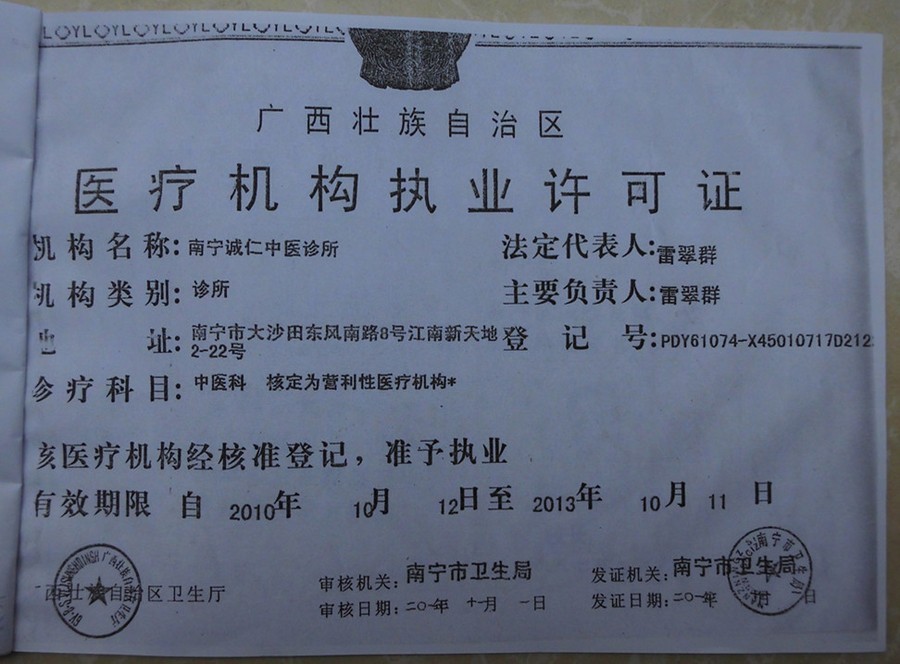 广西壮族自治区
医疗机构执业许可证
机构名称：南宁诚仁中医诊所
法定代表人：雷翠群
机构类别：诊所
主要负责人：雷翠群
址：南宁市大沙田东风南路8号江南新天地
2-22号
登记号：PDY61074-X45010717D212
诊疗科目：中医科 核定为营利性医疗机构*
该医疗机构经核准登记，准予执业
有效期限 自 2010年 10月 12日至 2013年 10月 11日
西壮族自治区卫生厅
审核机关：南宁市卫生局
发证机关：南宁市卫生局
审核日期：二〇一〇年 十一月 一日
发证日期：二〇一〇年 月 日